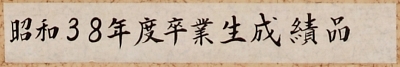 昭和38年度卒業生成績品